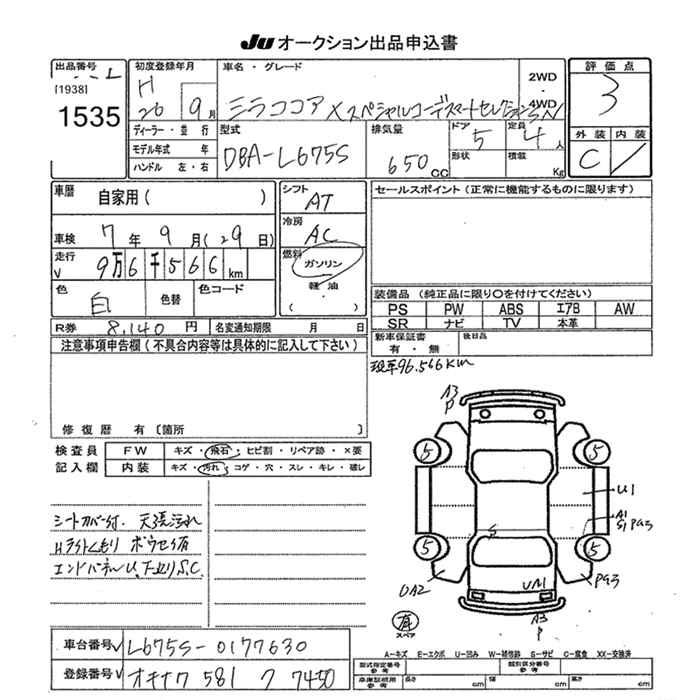 JU オークション出品申込書
出品番号
[1938]
1535
初度登録年月
H
26 9月
ディーラー・並行
モデル年式 年
ハンドル 左・右
車名・グレード
ミラココア XスペシャルコーデスマートセレクションSN
2WD
4WD
型式
DBA-L675S
排気量
650 CC
ドア
5
定員
4人
形状
積載
Kg
評価点
3
外装 内装
C
車歴
自家用( )
車検
7年9月(29日)
走行
V
9万6千566km
色
白
色替
色コード
R券 8,140円
名変通知期限 月 日
シフト
AT
冷房
AC
燃料
ガソリン
軽油
( )
セールスポイント(正常に機能するものに限ります)
装備品(純正品に限り〇を付けてください)
PS PW ABS エアB AW
SR ナビ TV 本革
新車保証書
有・無
後日品
現車96.566Km
注意事項申告欄(不具合内容等は具体的に記入して下さい)
修復歴 有〔箇所 〕
検査員
記入欄
FW キズ・飛石・ヒビ割・リペア跡・×要
内装 キズ・汚れ・コゲ・穴・スレ・キレ・破レ
シートカバー付. 天張汚れ
Hライトくもり ボウセイ有
エンドパネルU,下廻りS,C.
A3
P
5
5
5
5
U1
A1
S1 PG3
S
UA2
UM1
PG3
A3
P
有
スペア
車台番号 L675S-0177630
登録番号 オキナワ 581 ワ 7450
A-キズ E-エクボ U-凹み W-補修跡 S-サビ C-腐食 XX-交換済
型式指定番号
参考
類別区分番号
参考
車庫証明用
参考
長さ cm
幅 cm
高さ cm